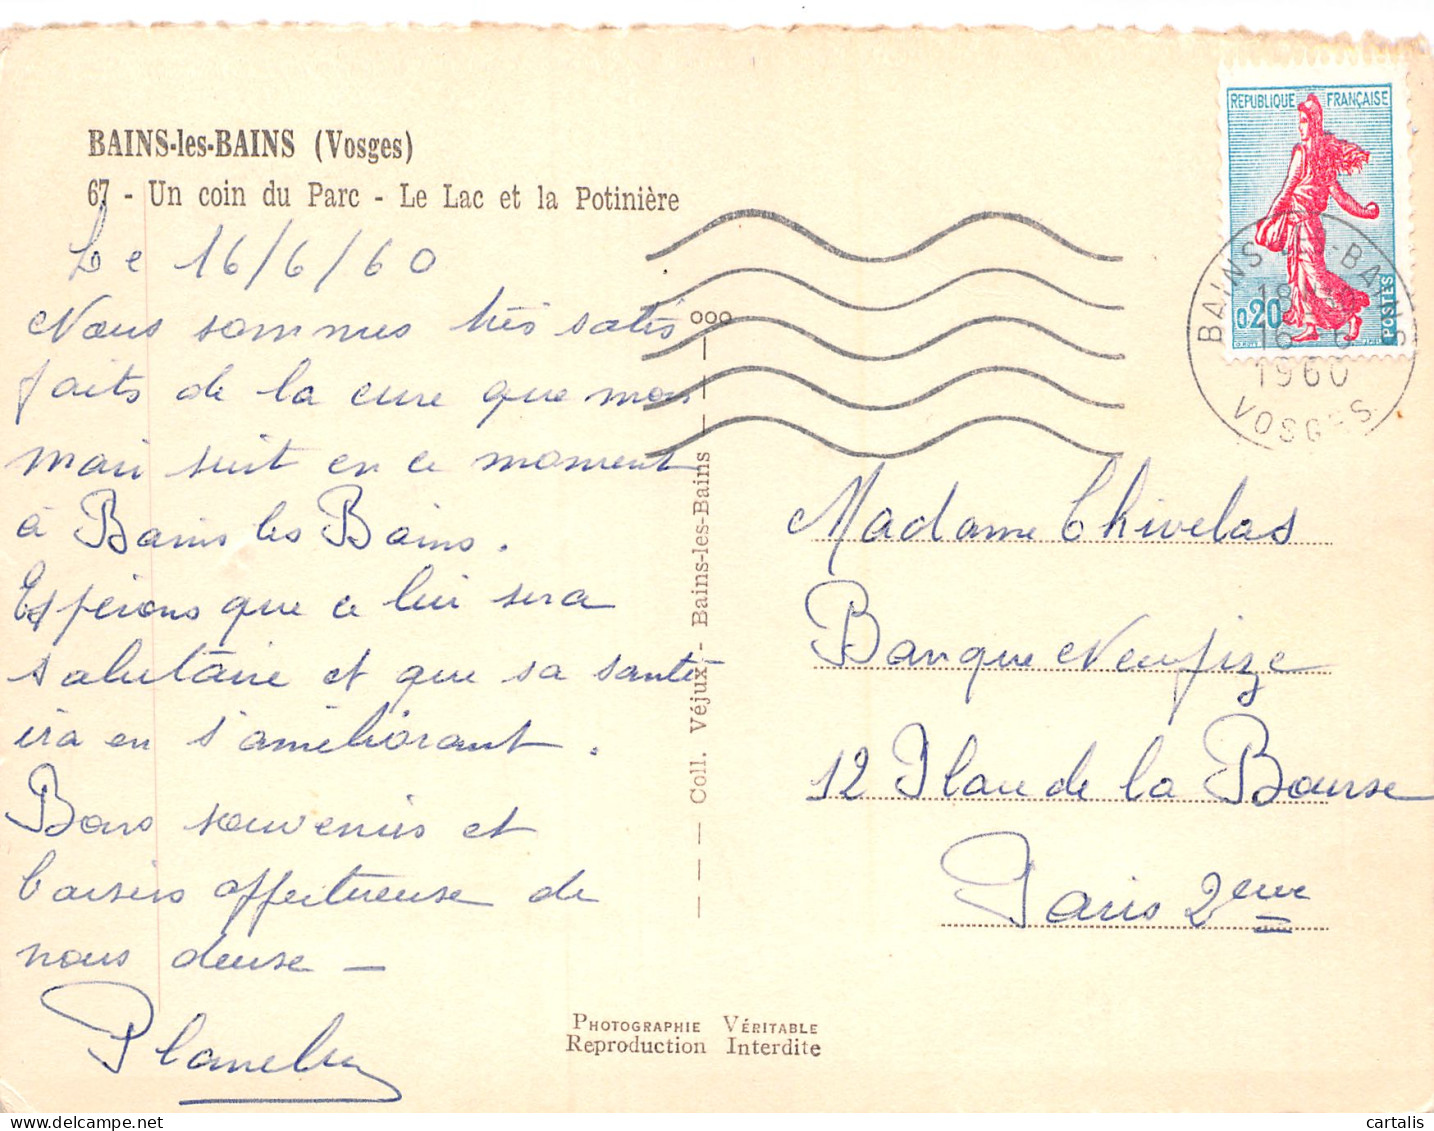 BAINS-les-BAINS (Vosges)
67 - Un coin du Parc - Le Lac et la Potinière
Le 16/6/60
Nous sommes très satis
faits de la cure que mon
mari suit en ce moment
à Bains les Bains.
Espérons que ce lui sera
salutaire et que sa santé
ira en s'améliorant.
Bons souvenirs et
baisers affectueuse de
nous deuse -
REPUBLIQUE FRANÇAISE
0,20
POSTES
BAINS-LES-BAINS
18
16-6
1960
VOSGES
Madame Chivelas
Banque Neuflize
12 Place de la Bourse
Paris 2eme
Coll. Véjux - Bains-les-Bains
PHOTOGRAPHIE VÉRITABLE
Reproduction Interdite
cartalis